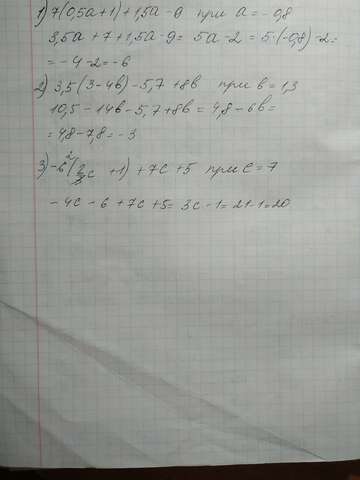 1) 7(0,5a+1)+1,5a-9 при a=-0,8
3,5a+7+1,5a-9= 5a-2=5·(-0,8)-2=
=-4-2=-6
2) 3,5(3-4в)-5,7+8в при в=1,3
10,5-14в-5,7+8в=4,8-6в=
=4,8-7,8=-3
3) -6²(2/3c+1)+7c+5 при c=7
-4c-6+7c+5=3c-1=21-1=20